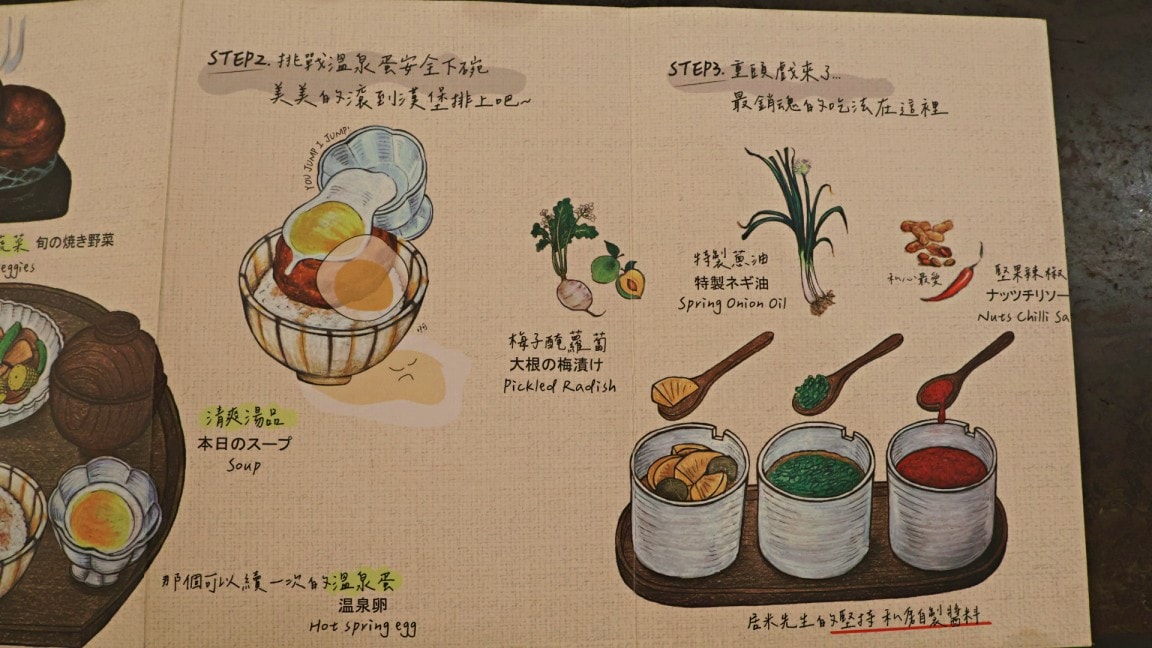 STEP2. 挑戰溫泉蛋安全下碗
美美的滾到漢堡排上吧~
YOU JUMP I JUMP!
旬の焼き野菜
eggies
清爽湯品
本日のスープ
Soup
那個可以續一次的溫泉蛋
温泉卵
Hot spring egg
梅子醃蘿蔔
大根の梅漬け
Pickled Radish
STEP3. 重頭戲來了...
最銷魂的吃法在這裡
特製蔥油
特製ネギ油
Spring Onion Oil
私心最愛
堅果辣椒
ナッツチリソー
Nuts Chilli Sa
居米先生的堅持 私房自製醬料